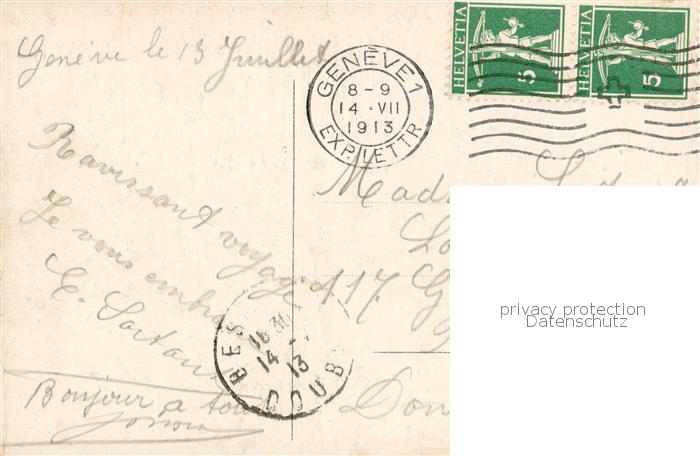 Genève le 13 Juillet
GENÈVE 1
8-9
14·VII
1913
EXP. LETTR.
HELVETIA
5
HELVETIA
5
Ravissant voyage
Je vous embra
E.
Bonjour a tous
Mad
17.
BES
DOUB
14
13
privacy protection
Datenschutz